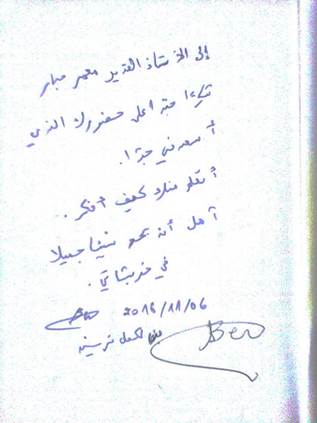 إلى الأستاذ القدير معمر حبار
شكرا جدا على حضورك الذي
أسعدني جدا.
أتعلم منك كيف أفكر.
آمل أن تجد شيئا جميلا
في خربشاتي.
2016/11/06
Ben